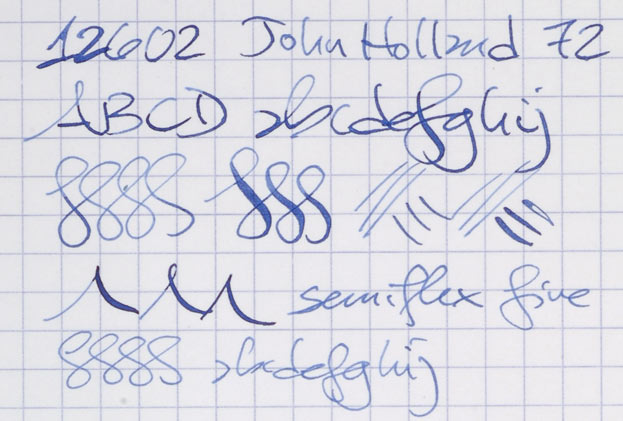 12602 John Holland 72
ABCD abcdefghij
8888 888
semiflex fine
8888 abcdefghij